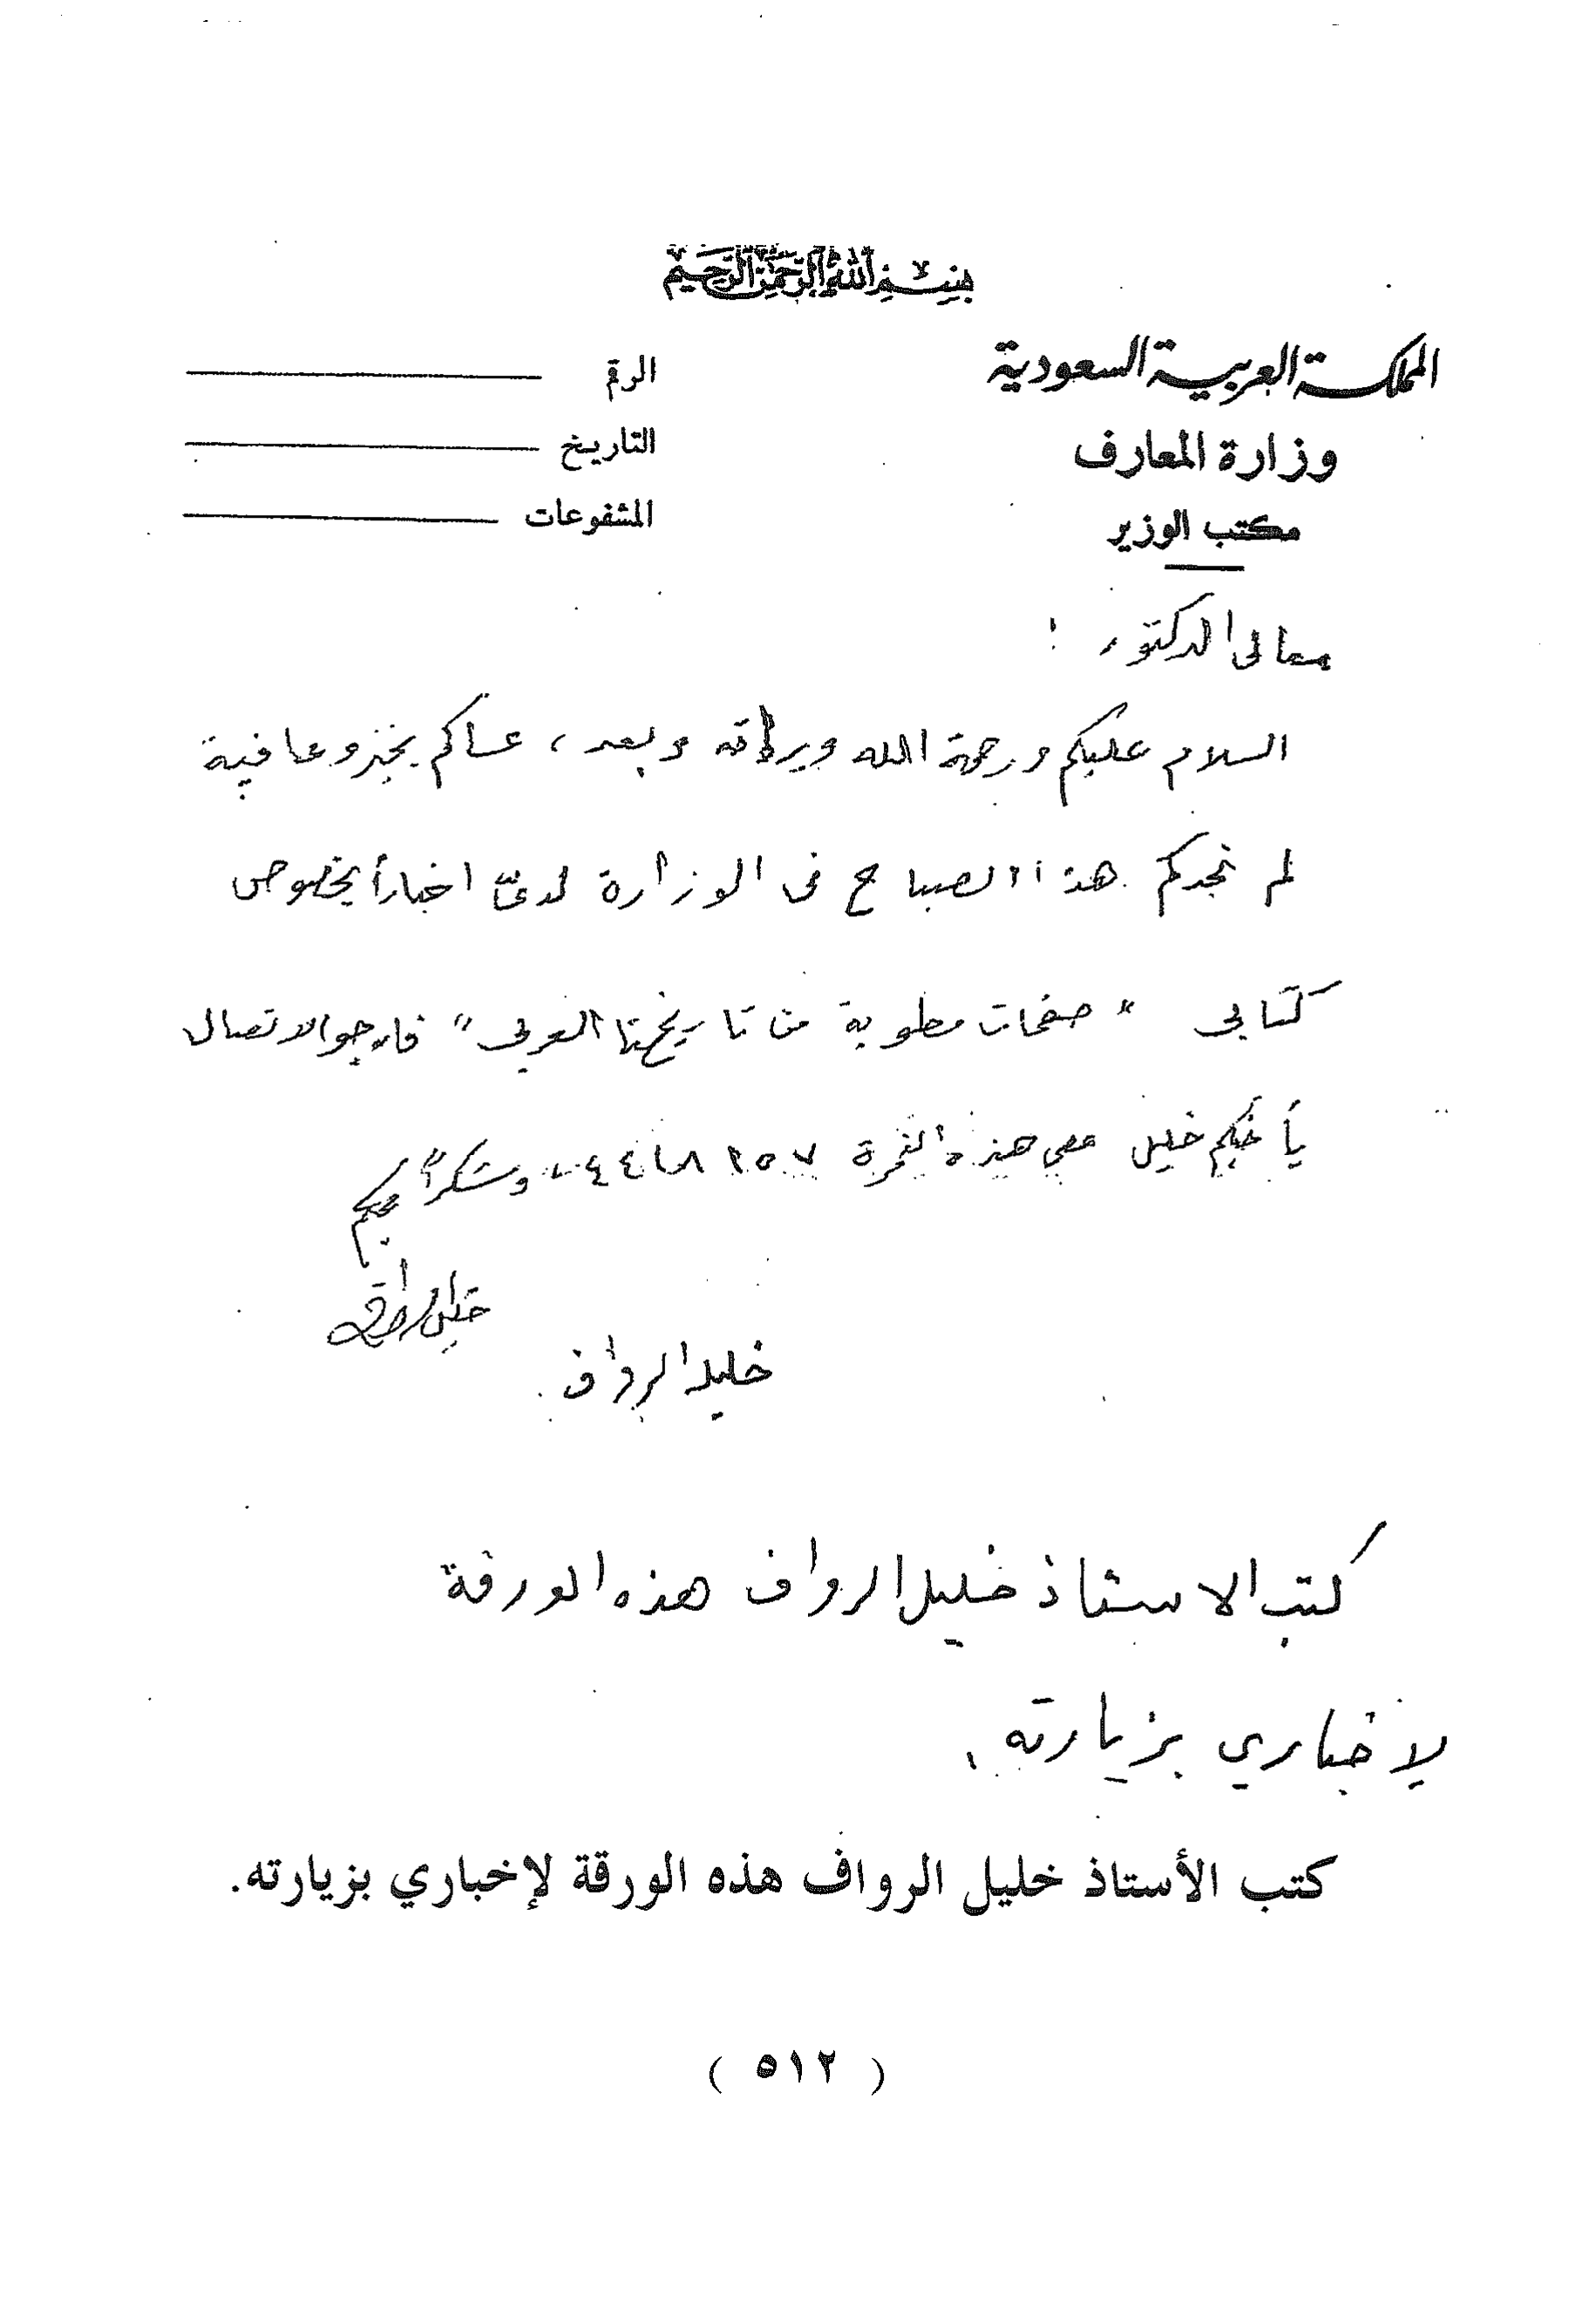 بسم الله الرحمن الرحيم
المملكة العربية السعودية
وزارة المعارف
مكتب الوزير
الرقم
التاريخ
المشفوعات
معالى الدكتور :
السلام عليكم ورحمة الله وبركاته وبعد ، عساكم بخير وعافية
لم نجدكم هذا الصباح فى الوزارة لدىّ اخباراً بخصوص
كتابى " صفحات مطوية من تاريخنا العربى " فارجو الاتصال
بأخيكم خليل على هذه النمرة وشكراً
خليل الرواف
خليل الرواف
كتب الاستاذ خليل الرواف هذه الورقة
لاخباري بزيارته .
كتب الأستاذ خليل الرواف هذه الورقة لإخباري بزيارته.
( ٥١٢ )